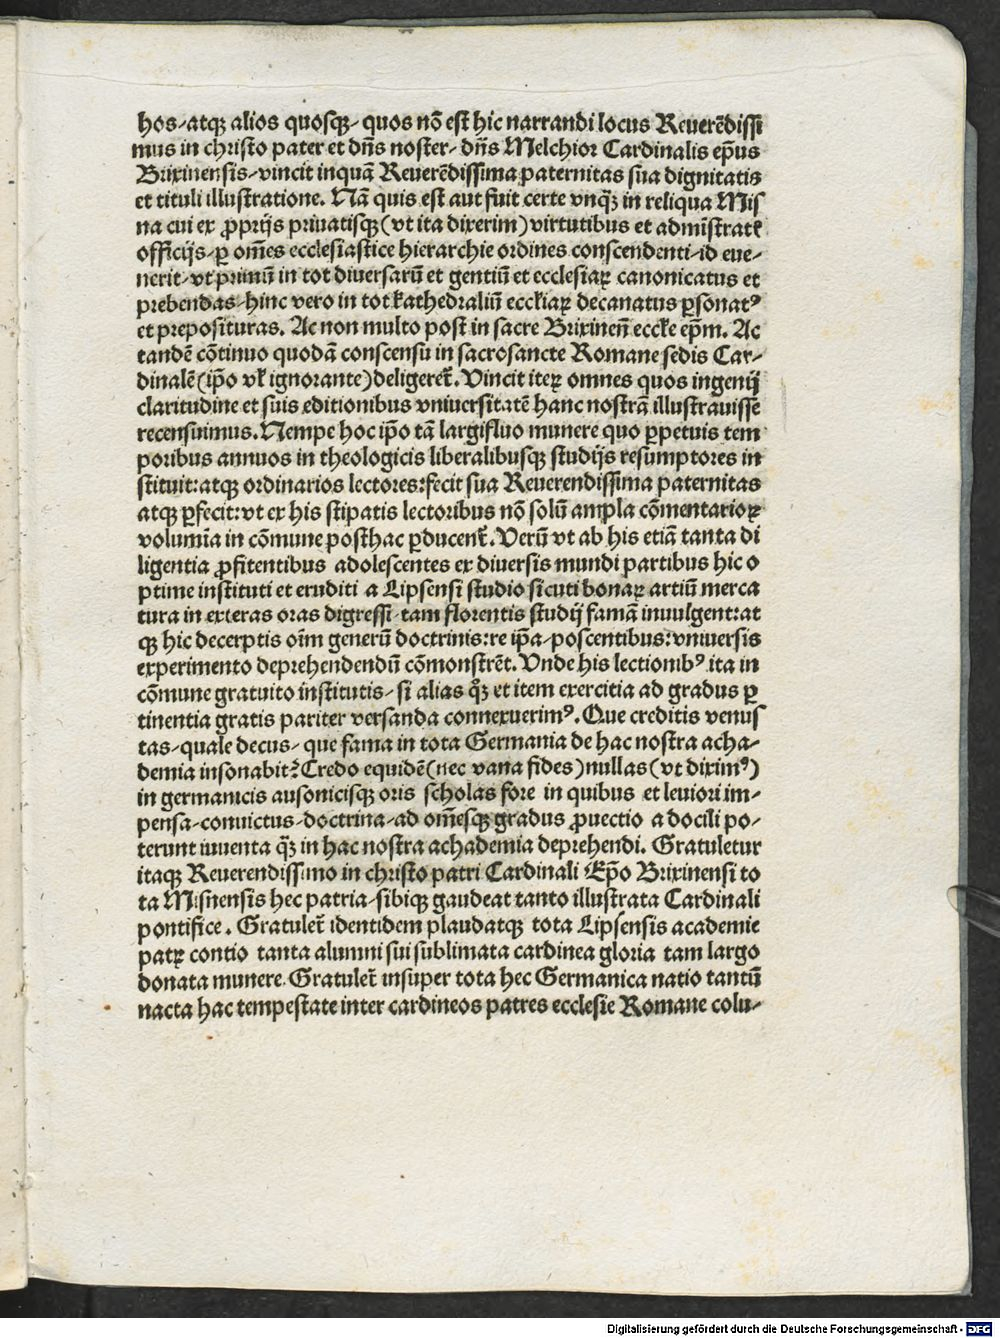 hos-atqꝫ alios quosqꝫ- quos nō est hic narrandi locus Reuerēdissi
mus in christo pater et dn̄s noster- dn̄s Melchior Cardinalis ep̄us
Brixinensis-vincit inquā Reuerēdissima paternitas sua dignitatis
et tituli illustratione. Nā quis est aut fuit certe vnqꝫ in reliqua Mis
na cui ex ꝓprijs priuatisqꝫ (vt ita dixerim) virtutibus et administratē
officijs-ꝑ om̄es ecclesiastice hierarchie ordines conscendenti-id eue-
nerit-vt primū in tot diuersarū et gentiū et ecclesiaꝝ canonicatus et
prebendas-hinc vero in tot kathedraliū eccl̄iaꝝ decanatus ꝑsonatꝰ
et preposituras. Ac non multo post in sacre Brixinen̄ eccl̄e ep̄m. Ac
tandē cōtinuo quodā conscensu in sacrosancte Romane sedis Car-
dinalē (ip̄o vl̄ ignorante) deligeret̄. Vincit iteꝝ omnes quos ingenij
claritudine et suis editionibus vniuersitatē hanc nostrā illustrauisse
recensuimus. Nempe hoc ip̄o tā largifluo munere quo ꝑpetuis tem
poribus annuos in theologicis liberalibusqꝫ studijs resumptores in
stituit:atqꝫ ordinarios lectores:fecit sua Reuerendissima paternitas
atqꝫ ꝑfecit:vt ex his stipatis lectoribus nō solū ampla cōmentarioꝝ
volumīa in cōmune posthac ꝑducent̄. Verū vt ab his etiā tanta di
ligentia ꝓfitentibus adolescentes ex diuersis mundi partibus hic o
ptime instituti et eruditi a Lipsensi studio sicuti bonaꝝ artiū merca
tura in exteras oras digressi-tam florentis studij famā inuulgent:at
qꝫ hic decerptis oīm generū doctrinis:re ip̄a-poscentibus:vniuersis
experimento deprehendendū cōmonstrēt. Vnde his lectionibꝰ ita in
cōmune gratuito institutis- si alias qꝫ̄ et item exercitia ad gradus ꝑ
tinentia gratis pariter versanda connexuerimꝰ. Que creditis venus
tas-quale decus- que fama in tota Germania de hac nostra acha-
demia insonabit? Credo equidē (nec vana fides) nullas (vt diximꝰ)
in germanicis ausonicisqꝫ oris scholas fore in quibus et leuiori im-
pensa-conuictus-doctrina-ad om̄esqꝫ gradus ꝓuectio a docili po-
terunt iuuenta qꝫ̄ in hac nostra achademia deprehendi. Gratuletur
itaqꝫ Reuerendissimo in christo patri Cardinali Ep̄o Brixinensi to
ta Misnensis hec patria-sibiqꝫ gaudeat tanto illustrata Cardinali
pontifice. Gratulet̄ identidem plaudatqꝫ tota Lipsensis academie
patꝝ contio tanta alumni sui sublimata cardinea gloria tam largo
donata munere. Gratulet̄ insuper tota hec Germanica natio tantū
nacta hac tempestate inter cardineos patres ecclesie Romane colu-
Digitalisierung gefördert durch die Deutsche Forschungsgemeinschaft - DFG